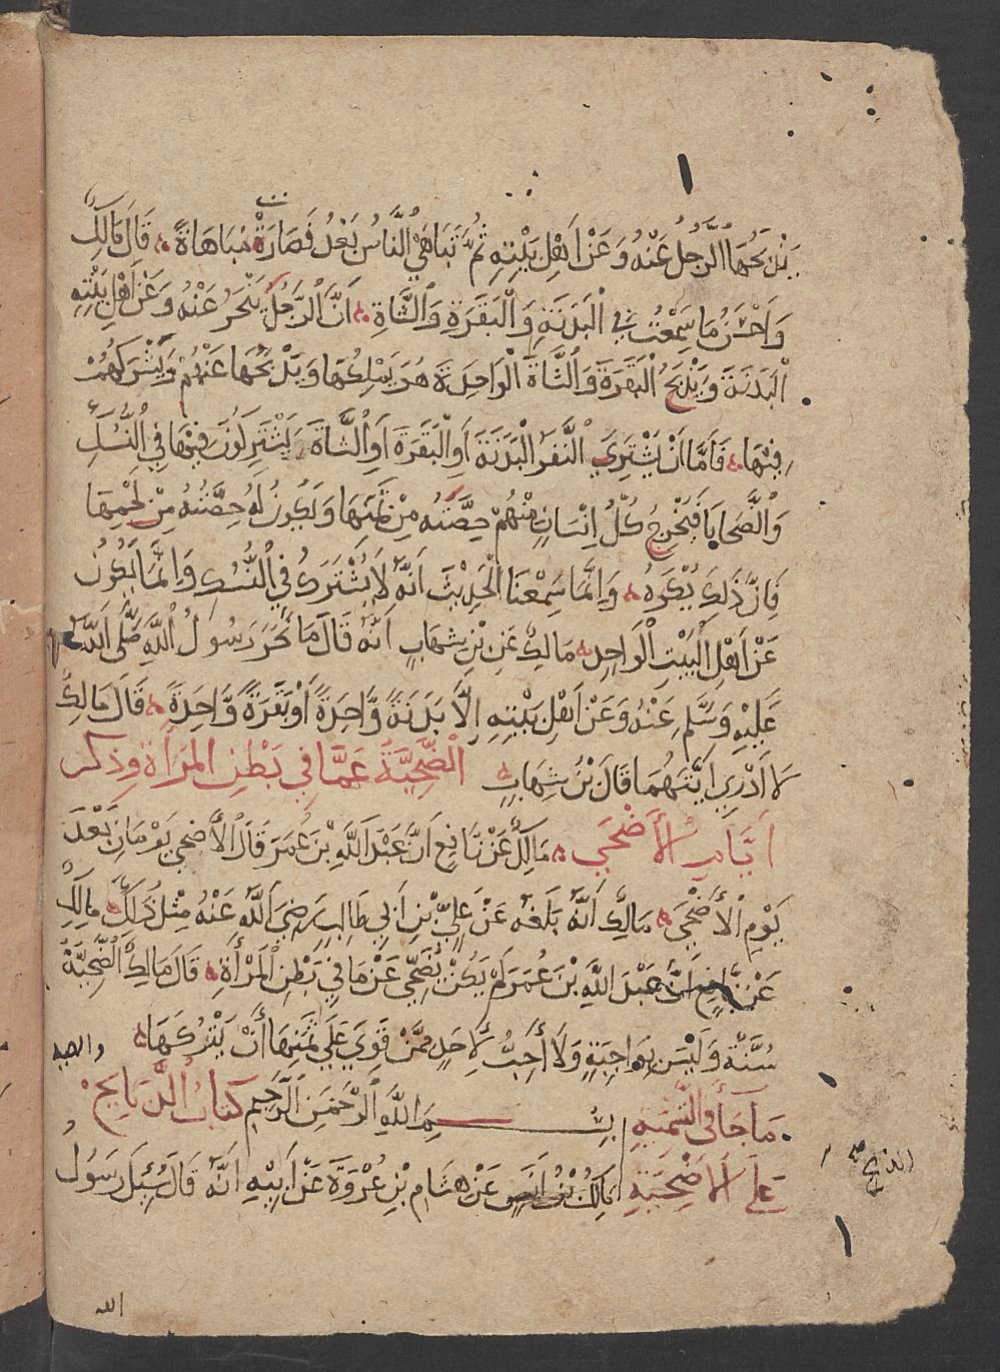 يَذْبَحُهَا الرَّجُلُ عَنْهُ وَعَنْ اَهْلِ بَيْتِهِ ثُمَّ تَبَاهَى النَّاسُ بَعْدُ فَصَارَةْ مُبَاهَاةً قَالَ مَالِكٌ
وَاَحْسَنُ مَا سَمِعْتُ فِي الْبَدَنَةِ وَالْبَقَرَةِ وَالشَّاةِ اَنَّ الرَّجُلَ يَنْحَرُ عَنْهُ وَعَنْ اَهْلِ بَيْتِهِ
الْبَدَنَةَ وَيَذْبَحُ الْبَقَرَةَ وَالشَّاةَ الْوَاحِدَةَ هُوَ يَمْلِكُهَا وَيَذْبَحُهَا عَنْهُمْ وَيَشْرَكُهُمْ
فِيْهَا فَاَمَّا اَنْ يَشْتَرِيَ النَّفَرُ الْبَدَنَةَ اَوِ الْبَقَرَةَ اَوِ الشَّاةَ يَشْتَرِكُونَ فِيْهَا فِي النُّسُكِ
وَالضَّحَايَا فَيُخْرِجُ كُلُّ اِنْسَانٍ مِنْهُمْ حِصَّتَهُ مِنْ ثَمَنِهَا وَيَكُونُ لَهُ حِصَّتُهُ مِنْ لَحْمِهَا
فَاِنَّ ذَلِكَ يُكْرَهُ وَاِنَّمَا سَمِعْنَا الْحَدِيْثَ اَنَّهُ لَا يُشْتَرَكُ فِي النُّسُكِ وَاِنَّمَا يَكُونُ
عَنْ اَهْلِ الْبَيْتِ الْوَاحِدِ مَالِكٌ عَنِ بْنِ شِهَابٍ اَنَّهُ قَالَ مَا نَحَرَ رَسُولُ اللَّهِ صَلَّى اللَّهُ
عَلَيْهِ وَسَلَّمَ عَنْهُ وَعَنْ اَهْلِ بَيْتِهِ اِلَّا بَدَنَةً وَّاحِدَةً اَوْ بَقَرَةً وَّاحِدَةً قَالَ مَالِكٌ
لَا اَدْرِي اَيَّتَهُمَا قَالَ بْنُ شِهَابٍ الضَّحِيَّةُ عَمَّا فِي بَطْنِ المَرْاَةِ وذكر
اَيَّامِ الْاَضْحَى مَالِكٌ عَنْ نَّافِعٍ اَنَّ عَبْدَ اللَّهِ بْنَ عُمَرَ قَالَ الْاَضْحَى يَوْمَانِ بَعْدَ
يَوْمِ الْاَضْحَى مَالِكٌ اَنَّهُ بَلَغَهُ عَنْ عَلِيِّ بْنِ اَبِي طَالِبٍ رَضِيَ اللَّهُ عَنْهُ مِثْلُ ذَلِكَ مَالِكٌ
عَنْ نَّافِعٍ اَنَّ عَبْدَ اللَّهِ بْنَ عُمَرَ لَمْ يَكُنْ يُضَحِّي عَنْ مَا فِي بَطْنِ الْمَرْأَةِ قَالَ مَالِكٌ الضَّحِيَّةُ
سُنَّةٌ وَلَيْسَ بِوَاجِبَةٍ وَلَا أُحِبُّ لِاَحَدٍ مِّمَّنْ قَوِيَ عَلَى ثَمَنِهَا أَنْ يَتْرُكَهَا
مَا جَاءَ فِي التَّسْمِيَةِ بِسْمِ اللَّهِ الرَّحْمَنِ الرَّحِيمِ كتابُ الذَّبَايِحِ
عَلَى الْاُضْحِيَةِ مَالِكُ بْنُ اَنَسٍ عَنْ هِشَامِ بْنِ عُرْوَةَ عَنْ اَبِيْهِ اَنَّهُ قَالَ سُئِلَ رَسُولُ
الله